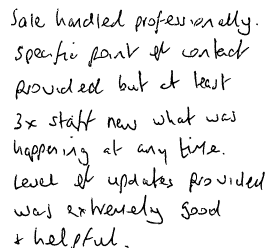 Sale handled professionally.
Specific point of contact
provided but at least
3x staff new what was
happening at any time.
Level of updates provided
was extremely good
+ helpful.